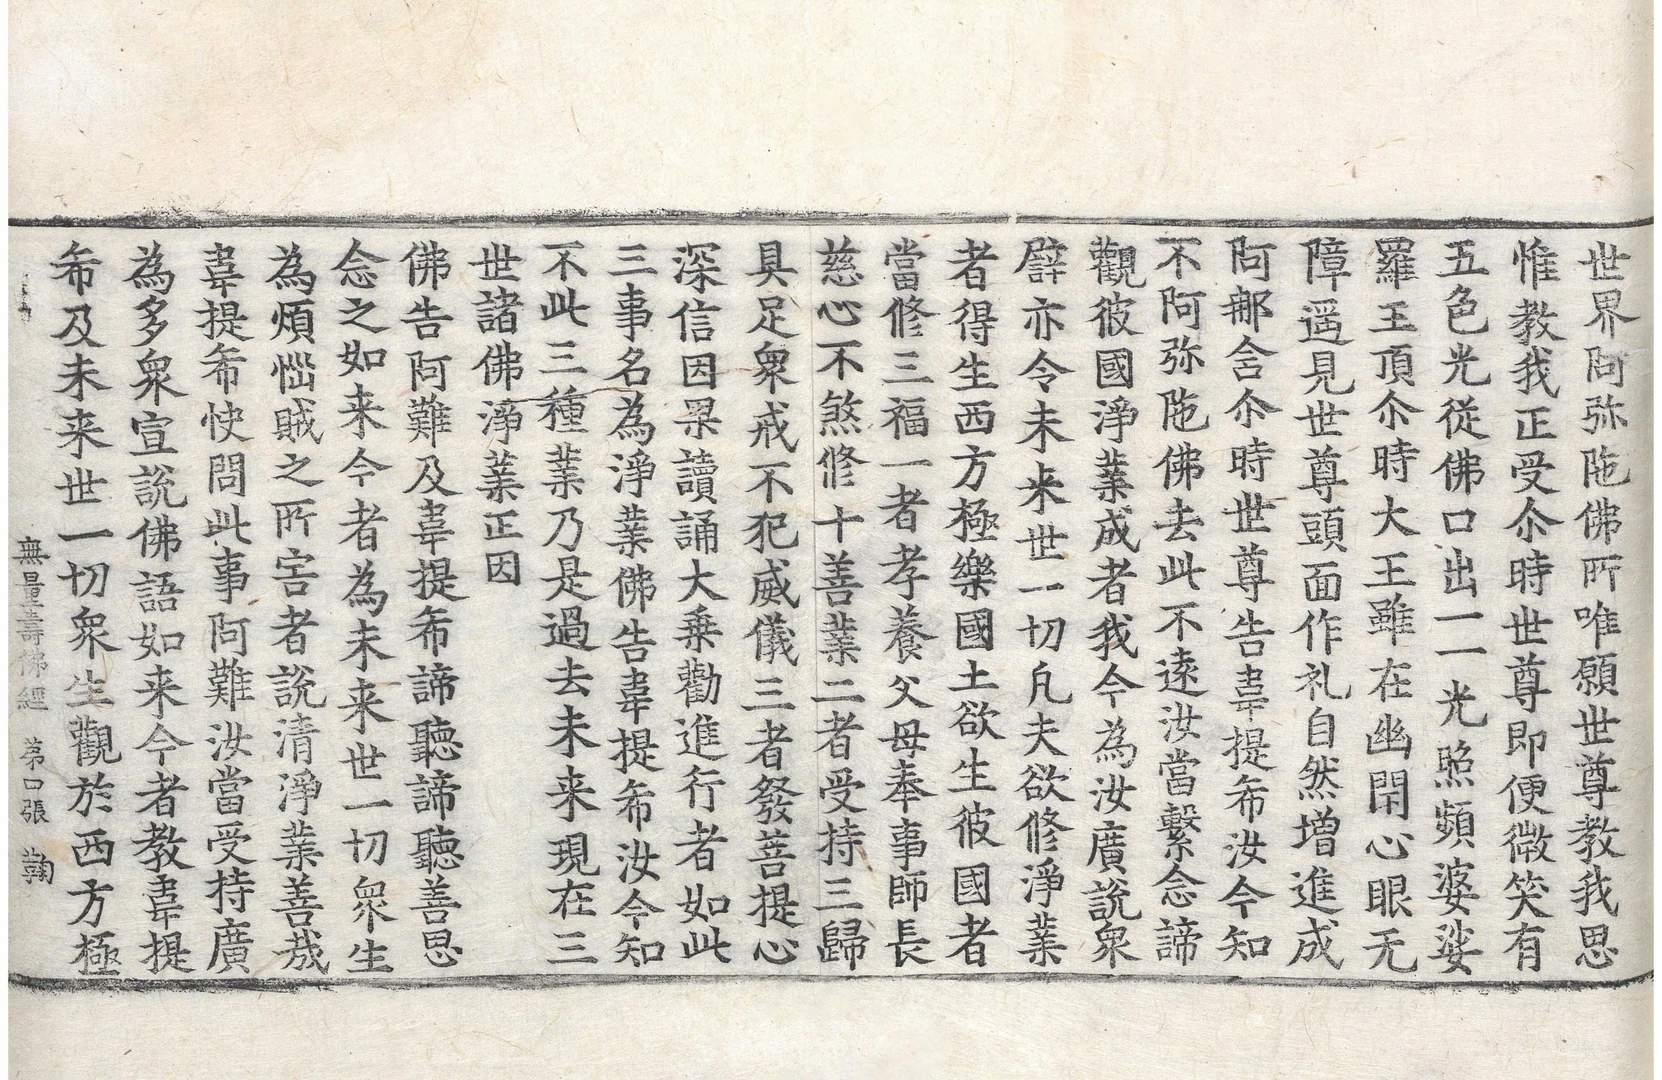 世界阿弥陁佛所唯願世尊教我思
惟教我正受尒時世尊即便微笑有
五色光從佛口出一一光照頻婆娑
羅王頂尒時大王雖在幽閇心眼无
障遥見世尊頭面作礼自然増進成
阿那含尒時世尊告韋提希汝今知
不阿弥陁佛去此不遠汝當繫念諦
觀彼國淨業成者我今為汝廣說衆
譬亦令未来世一切凡夫欲修淨業
者得生西方極樂國土欲生彼國者
當修三福一者孝養父母奉事師長
慈心不煞修十善業二者受持三歸
具足衆戒不犯威儀三者發菩提心
深信因果讀誦大乗勸進行者如此
三事名為淨業佛告韋提希汝今知
不此三種業乃是過去未来現在三
世諸佛淨業正因
佛告阿難及韋提希諦聽諦聽善思
念之如来今者為未来世一切衆生
為煩惱賊之所害者說清淨業善哉
韋提希快問此事阿難汝當受持廣
為多衆宣說佛語如来今者教韋提
希及未来世一切衆生觀於西方極
無量壽佛經 苐口張 鞠